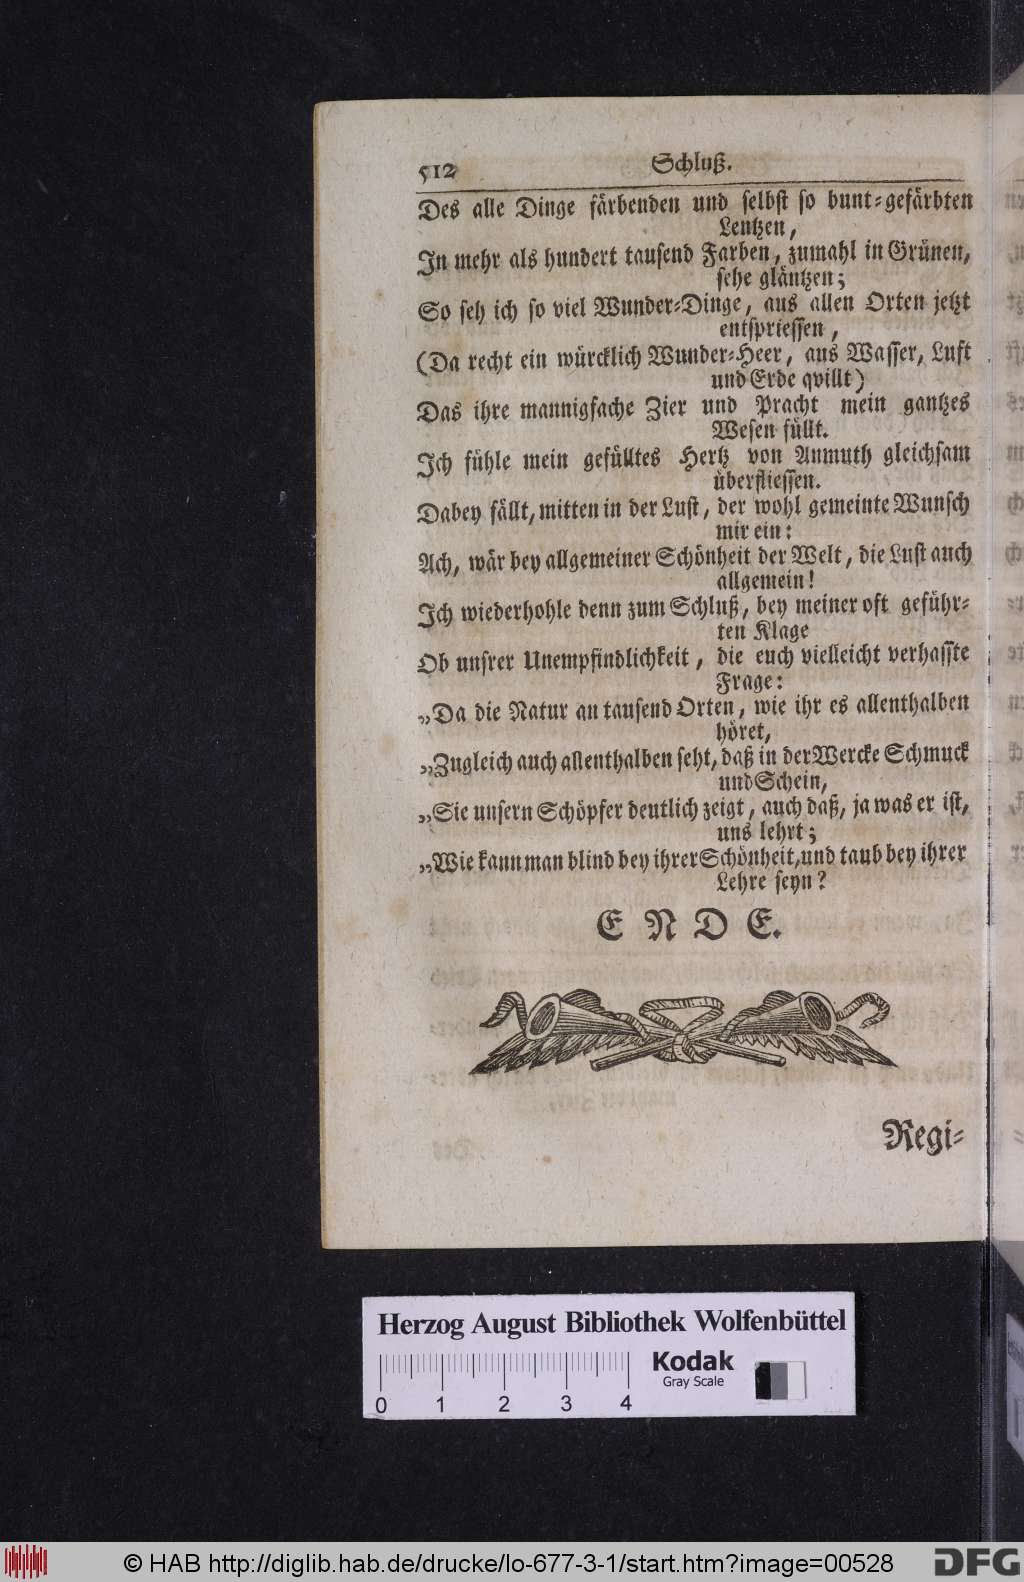 512 Schluß.
Des alle Dinge färbenden und selbst so bunt-gefärbten
Lentzen,
In mehr als hundert tausend Farben, zumahl in Grünen,
sehe gläntzen;
So seh ich so viel Wunder-Dinge, aus allen Orten jetzt
entspriessen,
(Da recht ein würcklich Wunder-Heer, aus Wasser, Luft
und Erde qvillt)
Das ihre mannigfache Zier und Pracht mein gantzes
Wesen füllt.
Ich fühle mein gefülltes Hertz von Anmuth gleichsam
überfliessen.
Dabey fällt, mitten in der Lust, der wohl gemeinte Wunsch
mir ein:
Ach, wär bey allgemeiner Schönheit der Welt, die Lust auch
allgemein!
Ich wiederhohle denn zum Schluß, bey meiner oft geführ-
ten Klage
Ob unsrer Unempfindlichkeit, die euch vielleicht verhasste
Frage:
„Da die Natur an tausend Orten, wie ihr es allenthalben
höret,
„Zugleich auch allenthalben seht, daß in der Wercke Schmuck
und Schein,
„Sie unsern Schöpfer deutlich zeigt, auch daß, ja was er ist,
uns lehrt;
„Wie kann man blind bey ihrer Schönheit, und taub bey ihrer
Lehre seyn?
ENDE.
Regi-
Herzog August Bibliothek Wolfenbüttel
Kodak
Gray Scale
0 1 2 3 4
© HAB http://diglib.hab.de/drucke/lo-677-3-1/start.htm?image=00528
DFG